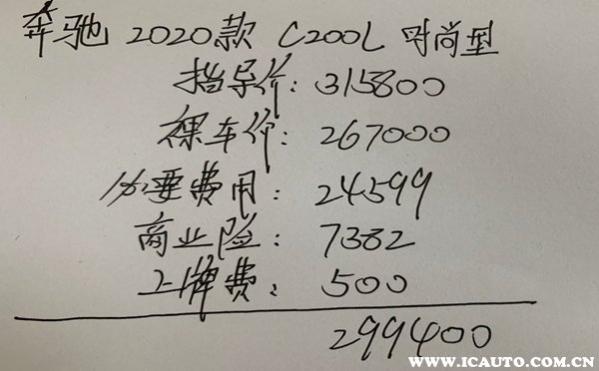 奔驰 2020款 C200L 时尚型
指导价: 315800
裸车价: 267000
必要费用: 24599
商业险: 7382
上牌费: 500
299400
WWW.ICAUTO.COM.CN